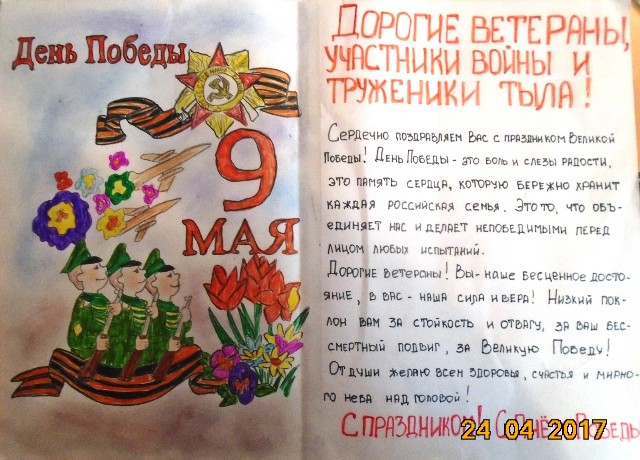 День Победы
9
МАЯ
Дорогие ветераны,
участники войны и
труженики тыла!
Сердечно поздравляем Вас с праздником Великой
Победы! День Победы - это боль и слезы радости,
это память сердца, которую бережно хранит
каждая российская семья. Это то, что объ-
единяет нас и делает непобедимыми перед
лицом любых испытаний.
Дорогие ветераны! Вы - наше бесценное досто-
яние, в вас - наша сила и вера! Низкий пок-
лон вам за стойкость и отвагу, за ваш бес-
смертный подвиг, за Великую Победу!
От души желаю всем здоровья, счастья и мирно-
го неба над головой!
С праздником! С Днём Победы
24 04 2017